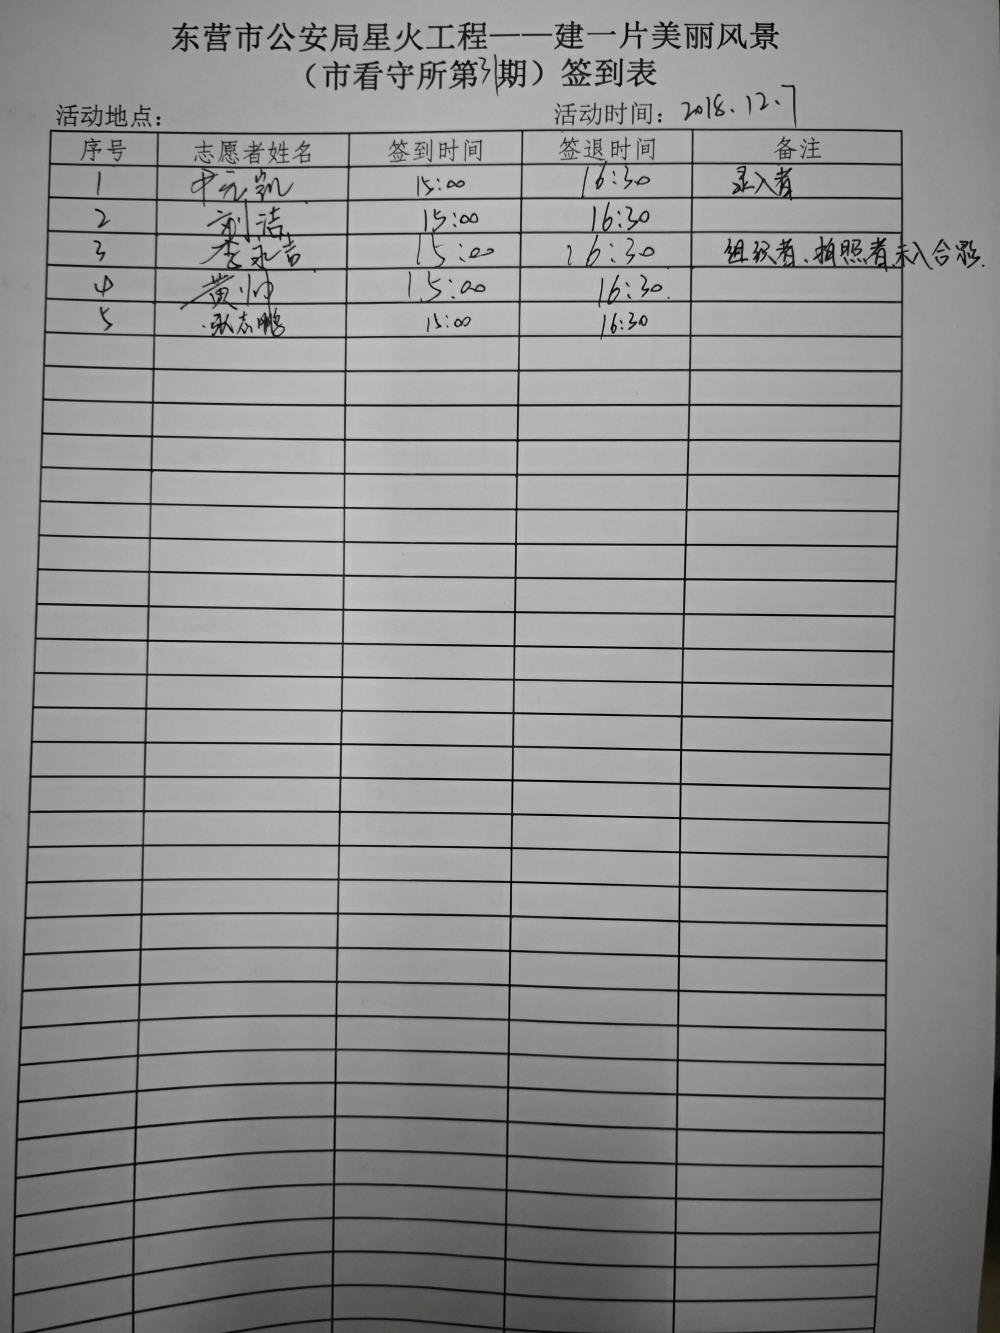 东营市公安局星火工程——建一片美丽风景
（市看守所第31期）签到表
活动地点： 活动时间：2018.12.7
序号 志愿者姓名 签到时间 签退时间 备注
1 元凯 15:00 16:30 录入者
2 刘洁 15:00 16:30
3 李永吉 15:00 16:30 组织者、拍照者未入合影.
4 黄帅 15:00 16:30.
5 张志鹏 15:00 16:30